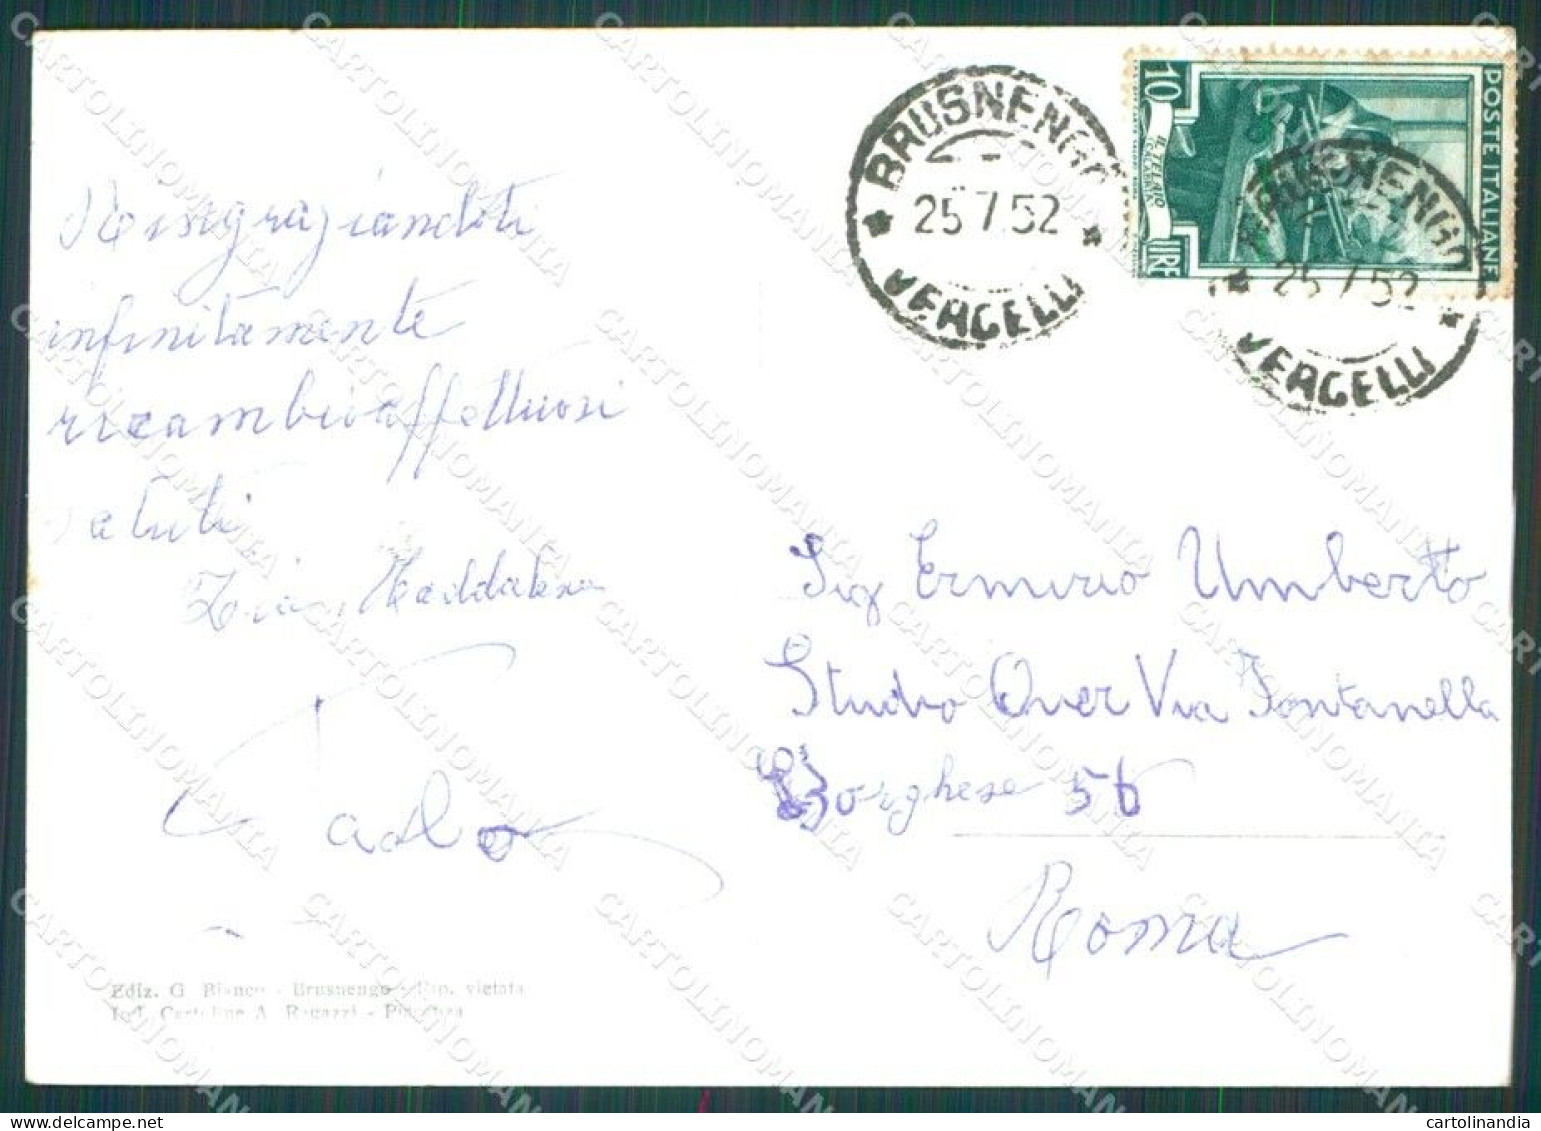 Risigraziandoti
infinitamente
ricambio affettuosi
saluti
Zia Maddalena
Carlo
Ediz. G. Bianco - Brusnengo - Rip. vietata
Ind. Cartoline A. Ragazzi - Piacenza
BRUSNENGO
25 7.52
VERCELLI
10
LIRE
POSTE ITALIANE
BRUSNENGO
25 7 52
VERCELLI
Sig Ermirio Umberto
Studio Over Via Fontanella
Borghese 56
Roma
CARTOLINOMANIA
cartolinandia